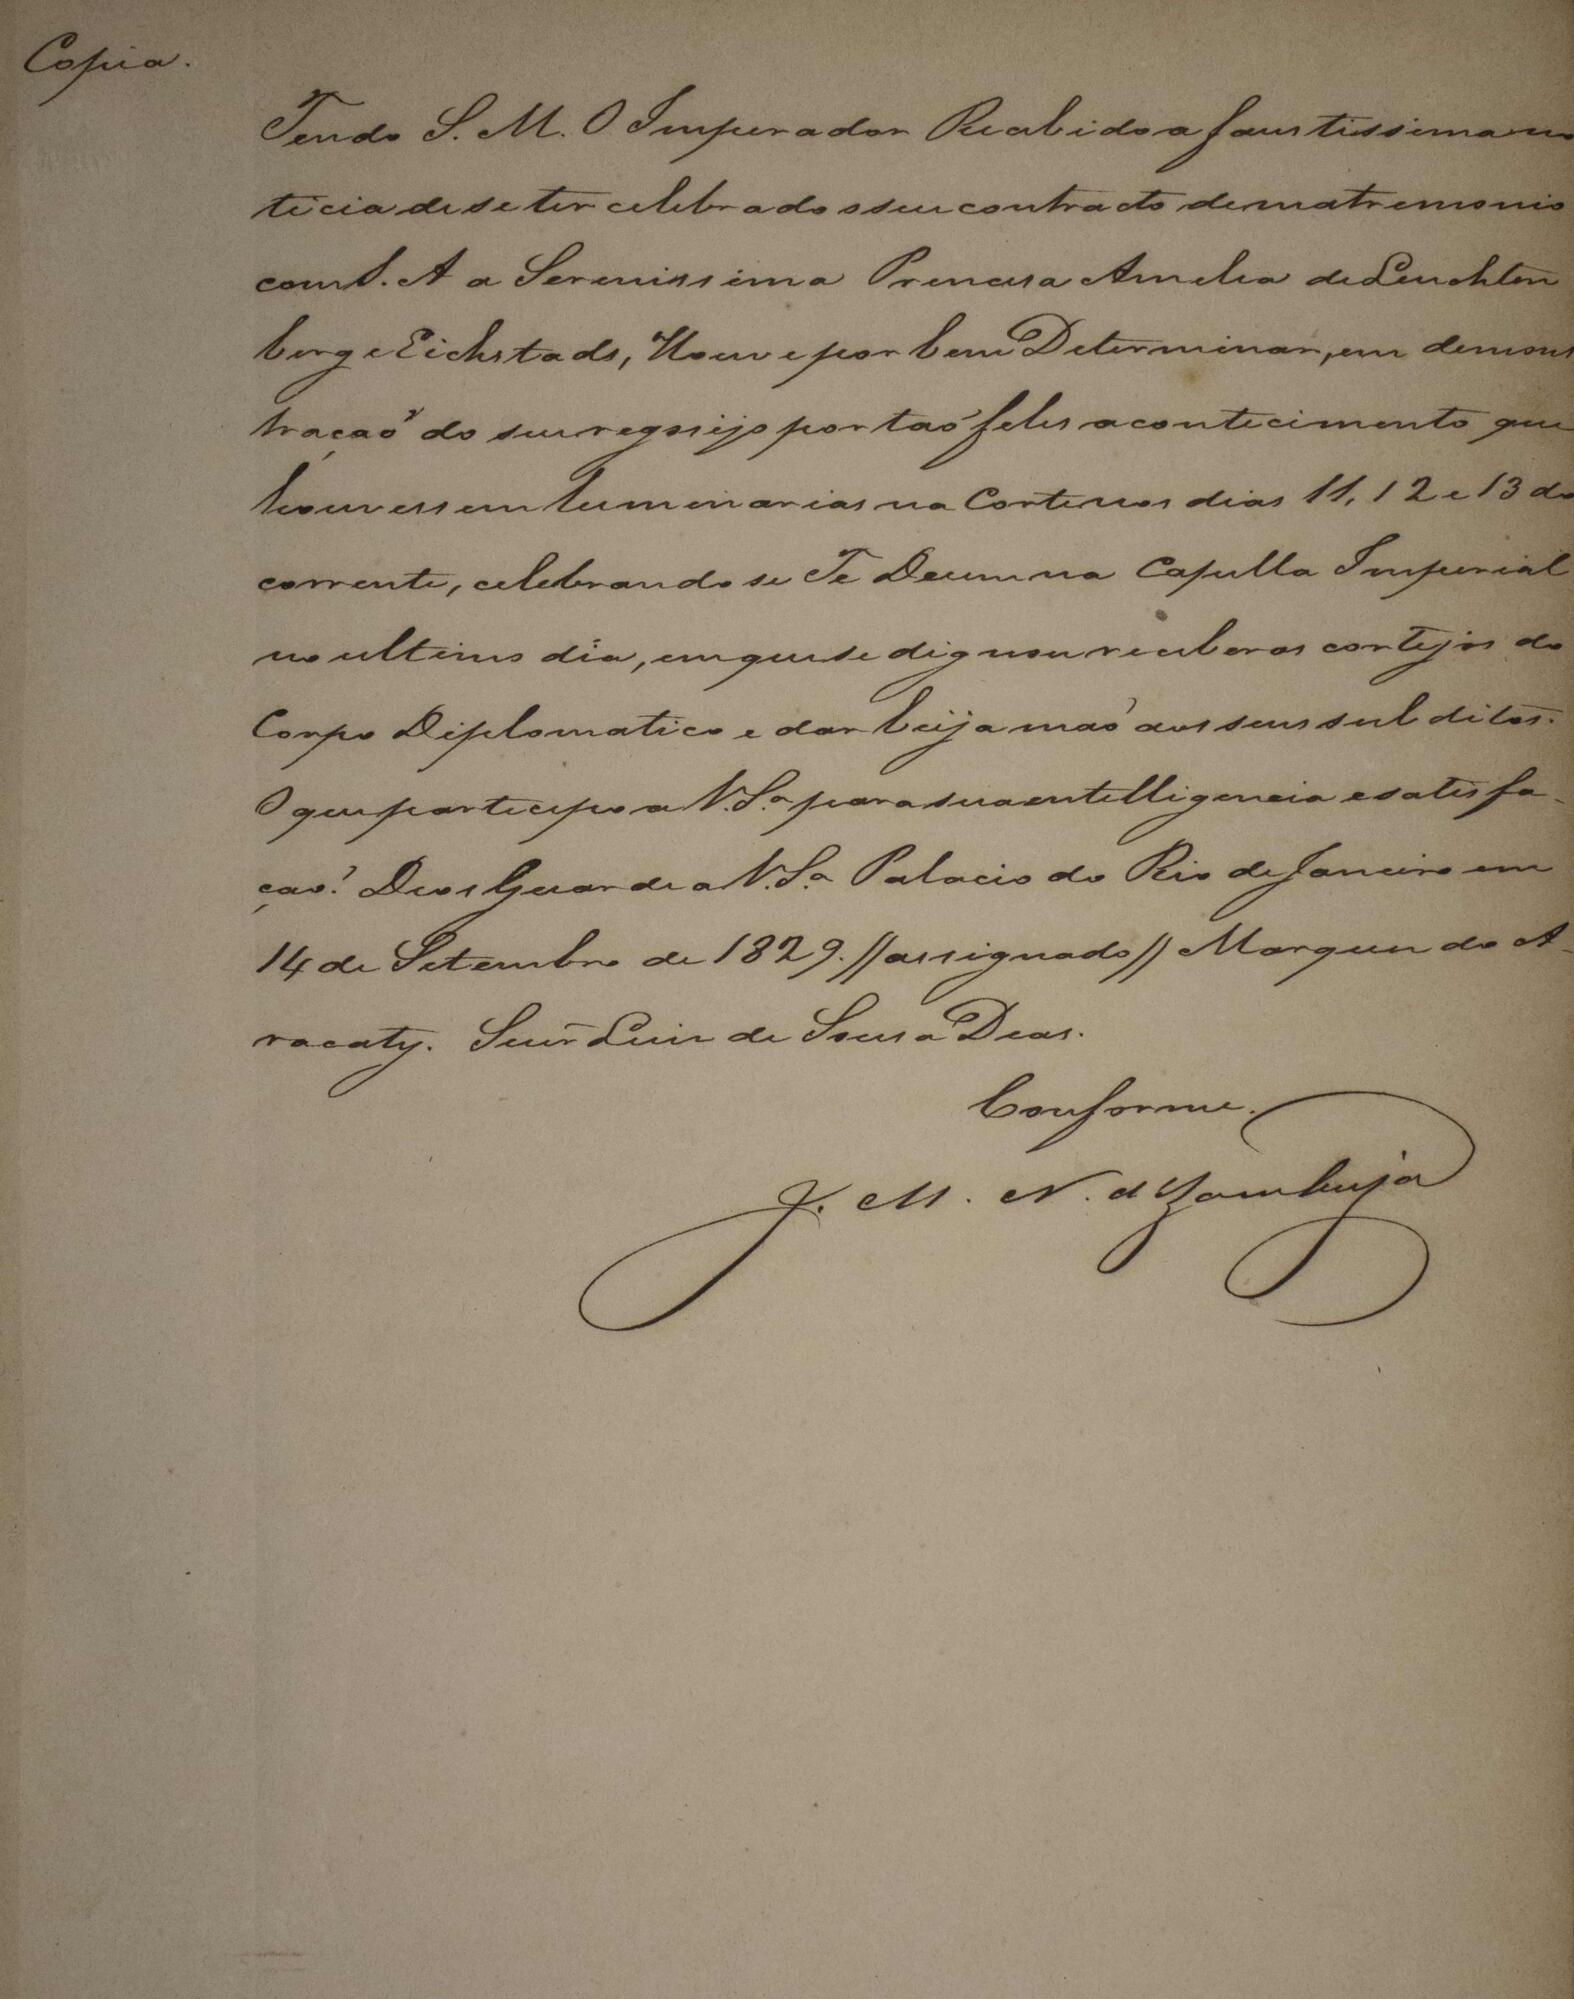 Copia.
Tendo S. M. O Imperador Recebido a faustissima no
ticia de se ter celebrado o seu contracto de matremonio
com S. A a Serenissima Princesa Amelia de Leuchten
berg e Eichstads, Houve por bem Determinar, em demons
tração do seu regosijo por tão feles acontecimento que
houvessem lumenarias na Corte nos dias 11, 12 e 13 do
corrente, celebrando se Te Deum na Capella Imperial
no ultimo dia, em que se dignou receber os cortejos do
Corpo Diplomatico e dar beija mão aos seus subditos.
O que participo a V. S.ª para sua entelligencia e satisfa-
ção. Deos Guarde a V. S.ª Palacio do Rio de Janeiro em
14 de Setembro de 1829. //assignado// Marques do A-
racaty. Senr Luis de Sousa Dias.
Conforme.
J. M. N. d'Azambuja